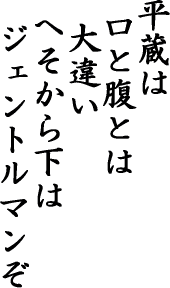 平蔵は
口と腹とは
大違い
へそから下は
ジェントルマンぞ